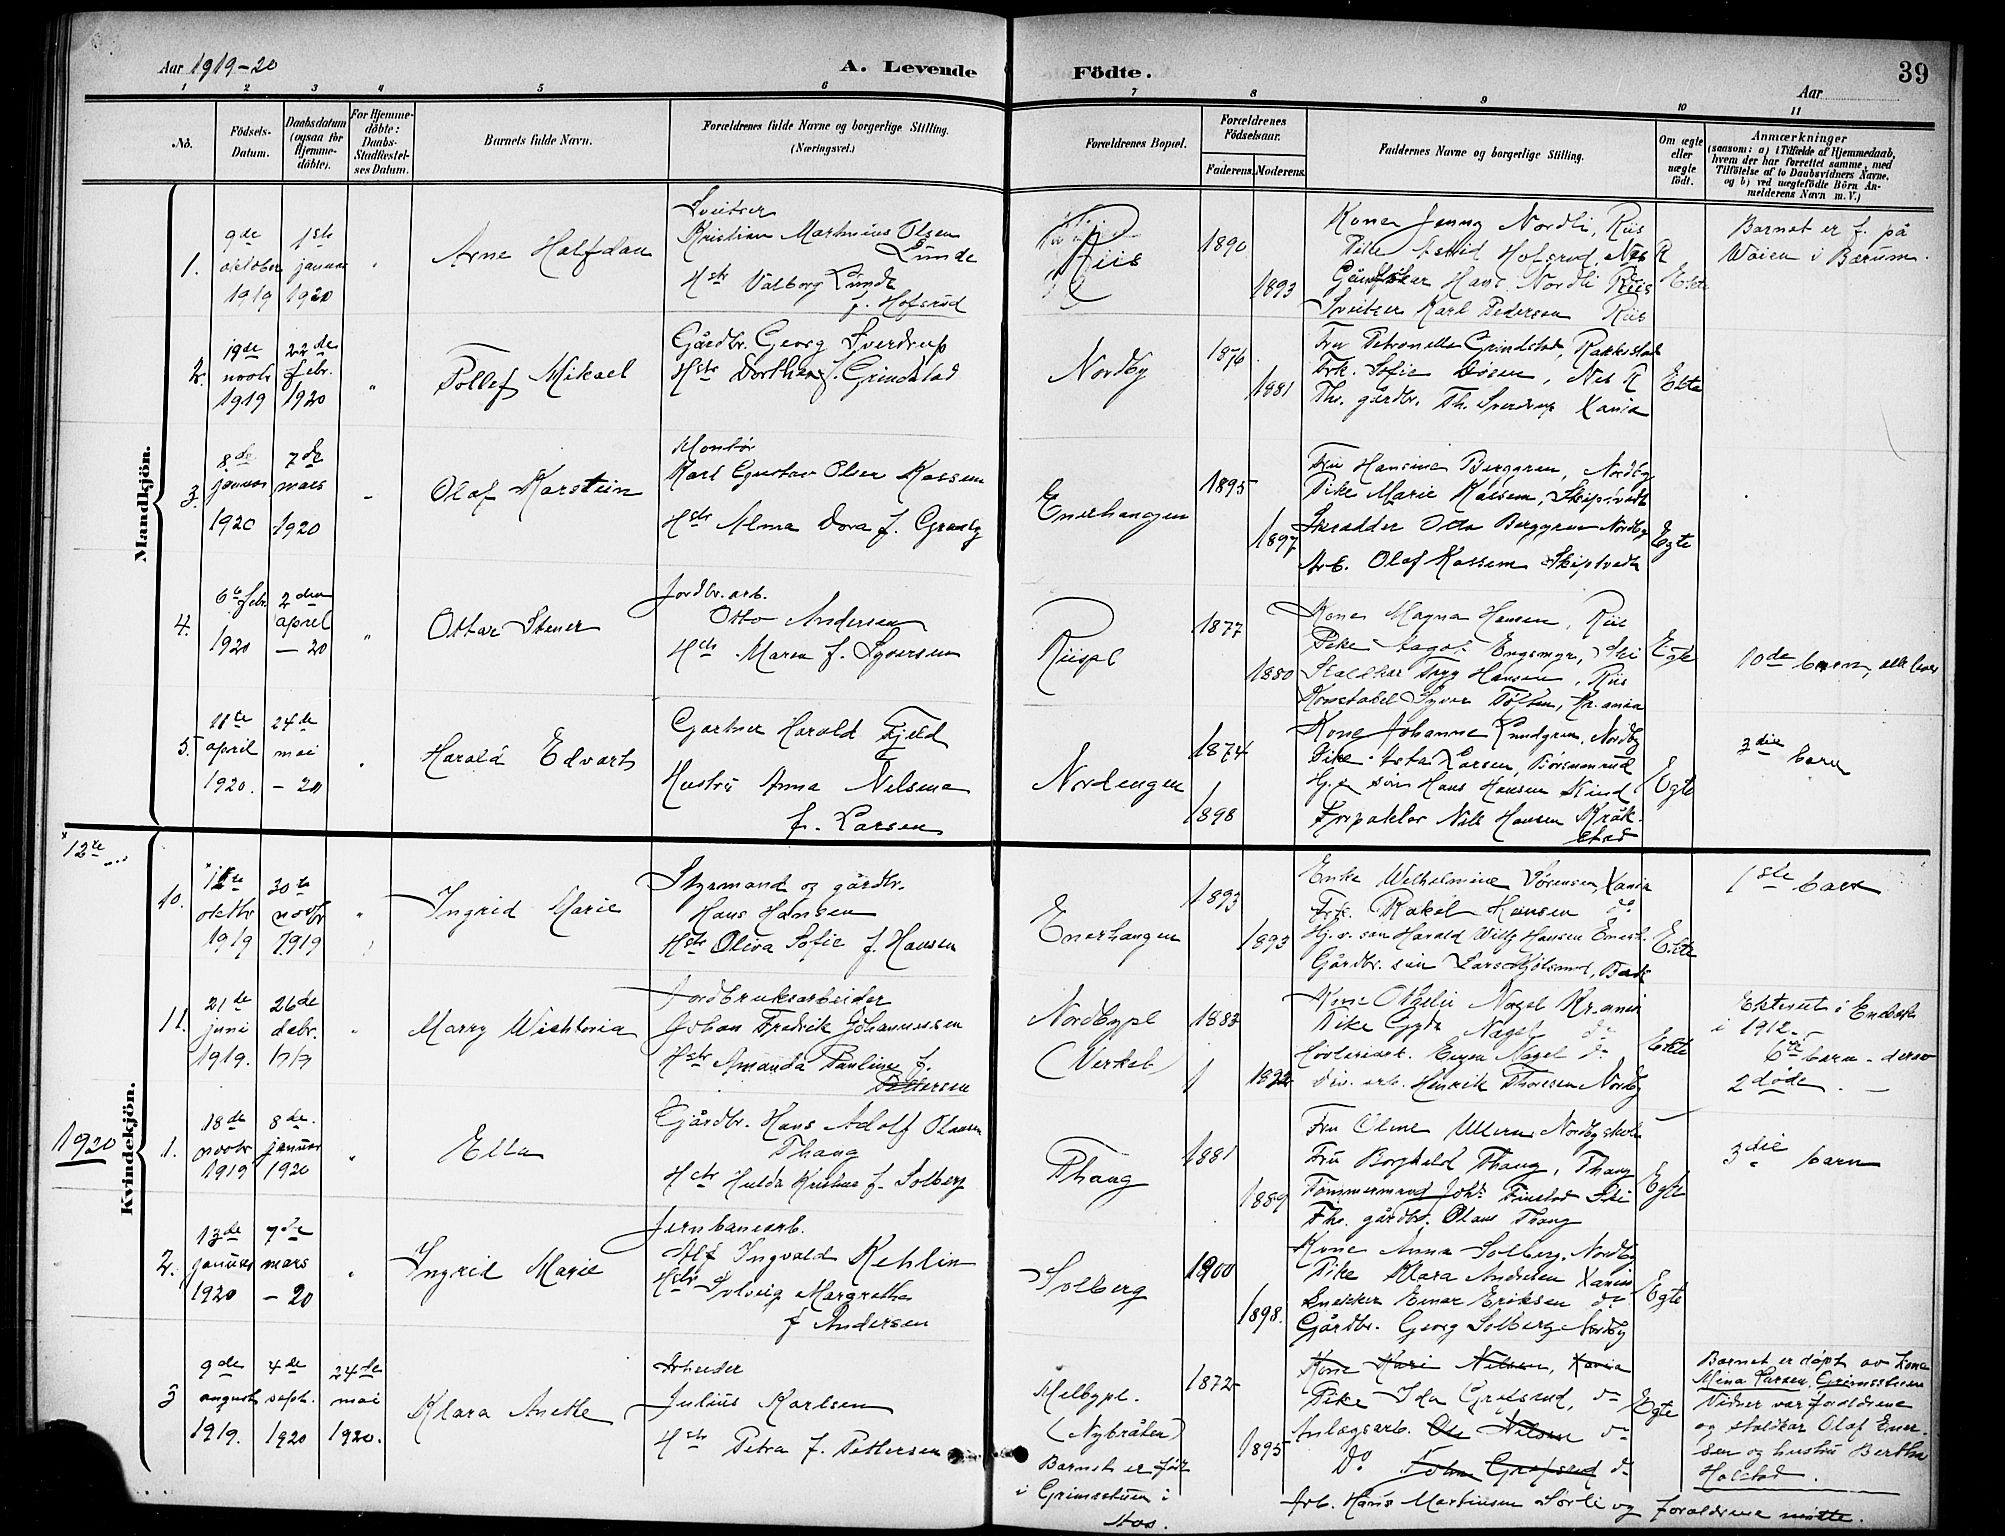 Aar 1919-20
A. Levende
Födte.
Aar
39
1 2 3 4 5 6 7 8 9 10 11
No.
Födsels-Datum.
Daabsdatum (ogsaa for Hjemmedöbte).
For Hjemmedöbte: Daabs-Stadfæstelses Datum.
Barnets fulde Navn.
Forældrenes fulde Navne og borgerlige Stilling. (Næringsvei.)
Forældrenes Bopæl.
Forældrenes Födselsaar.
Faderens. Moderens.
Faddernes Navne og borgerlige Stilling.
Om ægte eller uægte födt.
Anmærkninger
(saasom: a) i Tilfælde af Hjemmedaab,
hvem der har forrettet samme, med
Tilföielse af to Daabsvidners Navne,
og b) ved uægtefödte Börn An-
melderens Navn m. V.)
Mandkjön.
1.
9de oktober 1919
1ste januar 1920
Arne Halfdan
Sveitser
Kristian Martinius Olsen
Lunde
Hstr Valborg Lunde
f. Hofsrud
Riis
1890
1893
Kone Jenny Nordli, Riis
Pike Astrid Hofsrud Nes R
Hans Nordli Riis
Sveitser Karl Pedersen Riis
Ekte
Barnet er f. på
Wøien i Bærum.
2.
19de novbr 1919
22de febr. 1920
Tollef Mikael
Gårdbr. Georg Sverdrup
Hstr Dorthea f. Grindstad
Nordby
1876
1881
Fru Petronella Grindstad, Rakkestad
Frk. Sofie, Nes R
Fhv. gårdbr. Th. Sverdrup Xania
Ekte
3.
8de januar 1920
7de mars 1920
Olaf Karstein
Montør
Karl Gustav Olsen Kassem
Hstr Alma Dora f.
Enerhaugen
1895
1897
Fru Hansine Berggren, Nordby
Pike Marie Kassem, Skiptvedt
Skrædder Otto Berggren Nordby
Arb. Olaf Kassem Skiptvedt
Egte
4.
6te febr. 1920
2den april — 20
Ottar Stener
Jordbr.arb.
Otto Andersen
Hstr Maren f. Syversen
Riispl
1877
1880
Kone Magna Hansen, Riis
Pike Aagot Engsmyr, Ski
Staldkar Tryg Hansen, Riis
Konstabel Syver, Kr.ania
Egte
10de barn, alle lever
5.
11te april 1920.
24de mai — 20
Harald Edvart
Gartner Harald Fjeld
Hustru Anna Nelsine
f. Larsen
Nordengen
1874
1898
Kone Johanne Lundgren, Nordby
Pike Asta Larsen, Børsumrud
Hj. v. søn Hans Hansen Kind
Forpakter Nils Hansen Kråkstad
Egte
3die barn
Kvindekjön.
×12te
10.
×12te oktbr 1919
30te novbr 1919
Ingrid Marie
Styrmand og gårdbr.
Hans Hansen
Hstr Oliva Sofie f. Hansen
Enerhaugen
1893
1893
Enke Wilhelmine Sørensen, Xania
Frk. Rakel Hansen do
Hj. v. søn Harald Willy Hansen Enerh.
Gårdbr. søn Lars
Ekte
1ste barn
11.
21de juni 1919.
26de debr. 1919
Marry Wicktoria
Jordbruksarbeider
Johan Fredrik Johannessen
Hstr Amanda Pauline f.
Pettersen
Nordbypl
(Nerkel)
1883
1892
Kone Othelie Nagel Kr.ania
Pike Gyda Nagel do
Eugen Nagel do
Div. arb. Henrik Thoresen Nordby
Ekte
Ekteviet i Enebakk
i 1912.
6te barn - derav
2 døde.
1920
1.
18de novbr 1919
8de januar 1920
Ella
Gårdbr. Hans Adolf Olausen
Thaug
Hstr Hulda Kristine f. Solberg
Thaug
1881
1889
Fru Oline Ullern Nordby skole
Fru Borghild Thaug, Thaug
Tømmermand Johs Finstad Ski
Fhv. gårdbr. Olaus Thaug
Egte
3die barn
2.
13de januar 1920
7de mars — 20
Ingrid Marie
Jernbanearb.
Alf Ingvald Rehlin
Hstr Solveig Margrethe
f Andersen
Solberg
1900
1898.
Kone Anna Solberg, Nordby
Pike Klara Andersen Xania
Snekker Einar Eriksen do
Gårdbr. Georg Solberg Nordby
Egte
3
9de august 1919.
4de sept. 1920
24de mai 1920.
Klara Anette
Arbeider
Julius Karlsen
Hstr Petra f. Pettersen
Melbypl.
(Nybråten)
Barnet er født
i Grimsstuen i
Aas.
1872
1895
Kone Kari Nilsen, Xania
Pike Ida Grefsrud, do
Anlægsarb. Ole Nilsen do
Do Johan Grefsrud do
Arb. Hans Martinsen Sørli og forældrene møtte.
Egte
Barnet er døpt av kone
Mina Larsen, Grimsstuen
Vidner var forældrene
og staldkar Olaf Ener-
sen og hustru Berthe
Holstad.